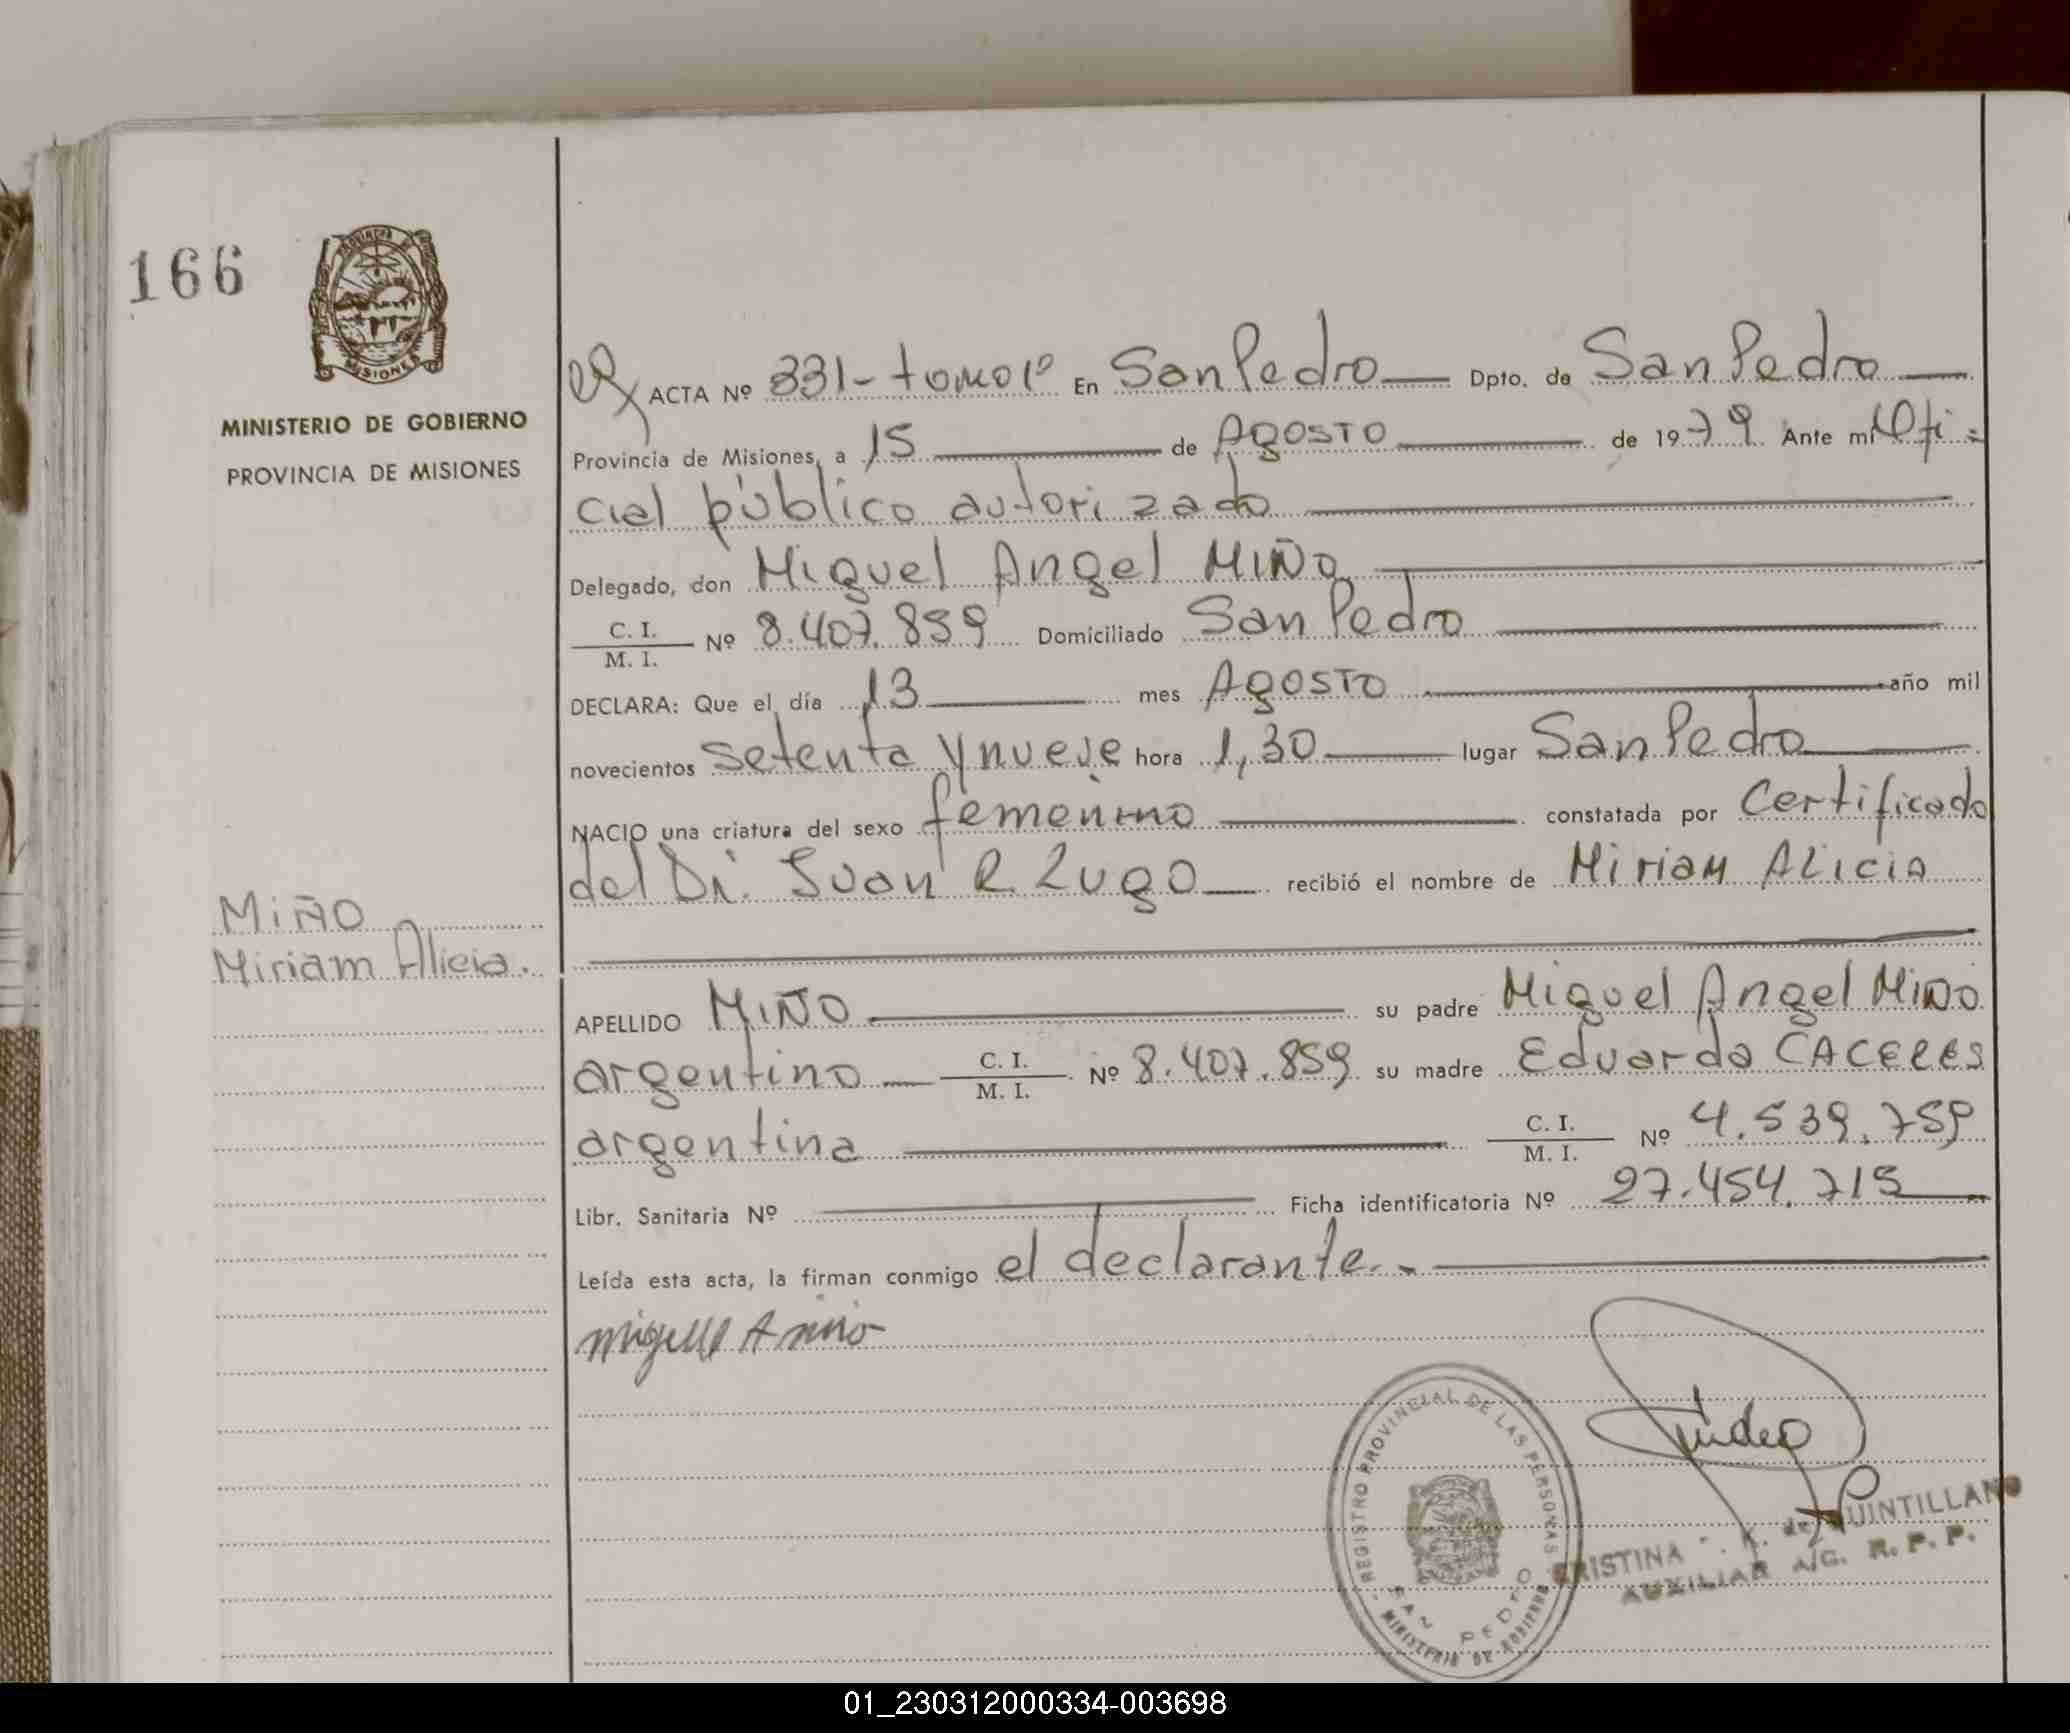 166
PROVINCIA DE
MISIONES
MINISTERIO DE GOBIERNO
PROVINCIA DE MISIONES
MiÑO
Miriam Alicia.
ACTA Nº 331 - tomo 1º En San Pedro Dpto. de San Pedro
Provincia de Misiones, a 15 de AgOSTO de 1979 Ante mi Ofi-
cial público autorizado
Delegado, don Miguel Angel MIÑO
C. I.
M. I. Nº 8.407.859 Domiciliado San Pedro
DECLARA: Que el día 13 mes AgOSTO año mil
novecientos setenta y nueve hora 1,30 lugar San Pedro
NACIO una criatura del sexo femenino constatada por Certificado
del Dr. Juan R. Lugo recibió el nombre de Miriam Alicia
APELLIDO MIÑO su padre Miguel Angel Miño
argentino C. I.
M. I. Nº 8.407.859 su madre Eduarda CACERES
argentina C. I.
M. I. Nº 4.539.759
Libr. Sanitaria Nº Ficha identificatoria Nº 27.454.715
Leída esta acta, la firman conmigo el declarante.-
REGISTRO PROVINCIAL DE LAS PERSONAS
SAN PEDRO
MINISTERIO DE GOBIERNO
CRISTINA K. de QUINTILLANO
AUXILIAR A/G. R. P. P.
01_230312000334-003698